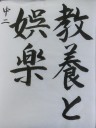 教養と
娯楽
中二